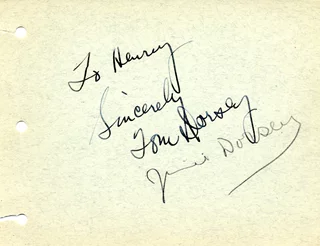 To Henry
Sincerely
Tom Dorsey
Jimmie Dorsey